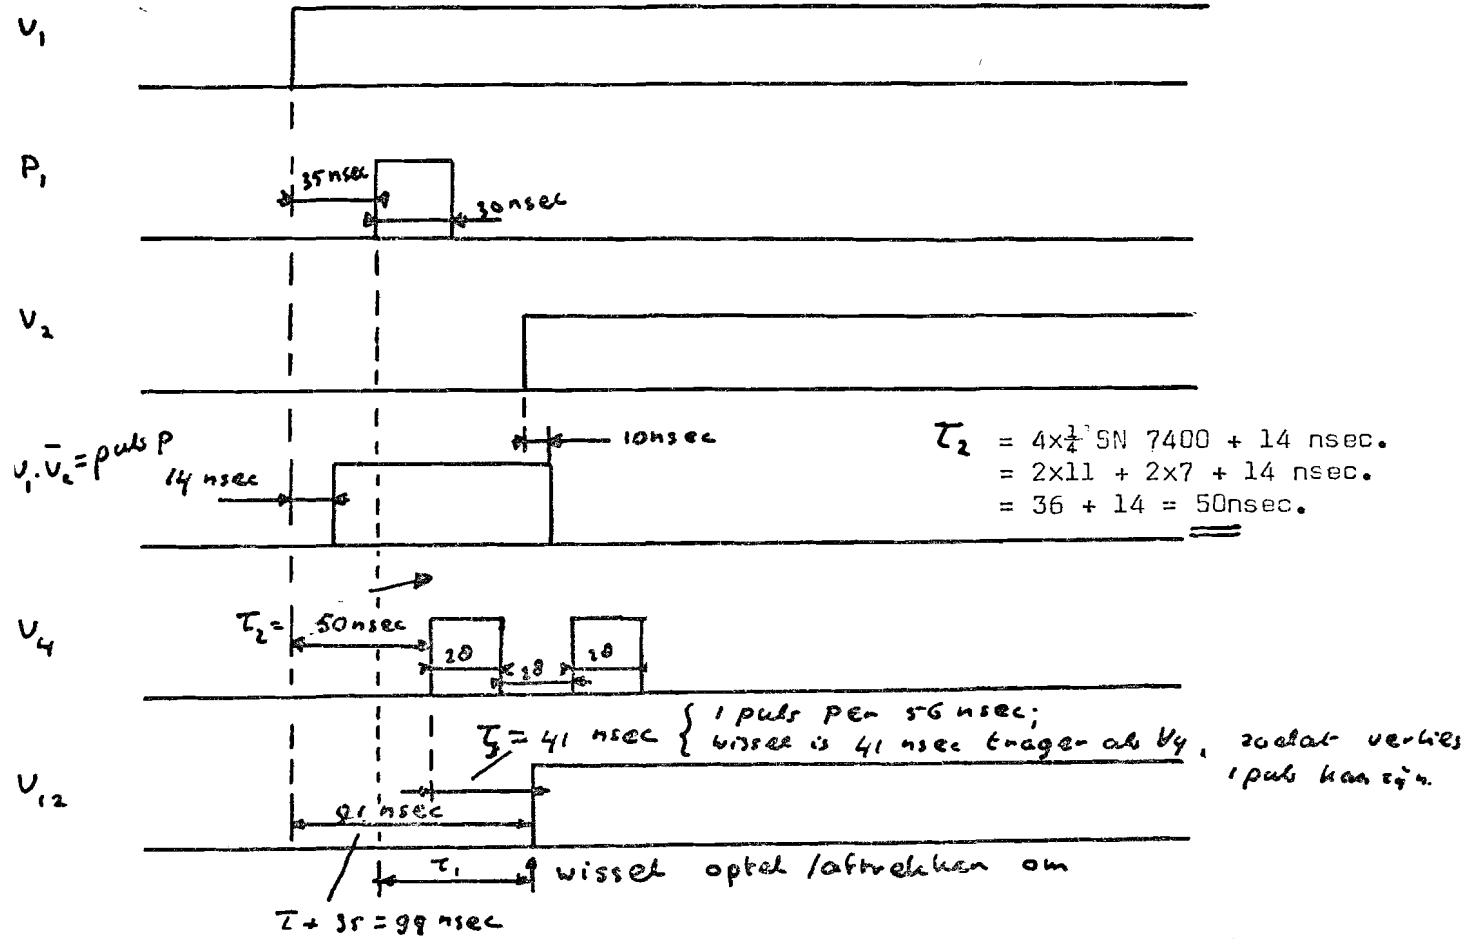 V₁
P₁
35 nsec
30 nsec
V₂
10nsec
V₁.V̄₂ = puls P
14 nsec
τ₂ = 4x¼ SN 7400 + 14 nsec.
= 2x11 + 2x7 + 14 nsec.
= 36 + 14 = 50nsec.
V₄
τ₂ = 50 nsec
28
28
28
τ₃ = 41 nsec { 1 puls per 56 nsec;
wissel is 41 nsec trager als V₄, zodat verlies
1 puls kan zijn.
V₁₂
91 nsec
τ₁
wissel optel/aftrekken om
τ + 35 = 99 nsec